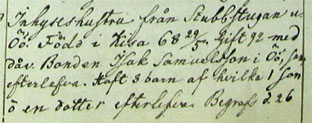 Inhyseshustru från Stubbstugan u.
Öö. Född i Kisa 68 29/5. Gift 92 med
dåv. Bonden Isak Samuelsson i Öö, som
efterlefva. Haft 3 barn af hvilke 1 son
o en dotter efterlefva. Begrofs d. 26